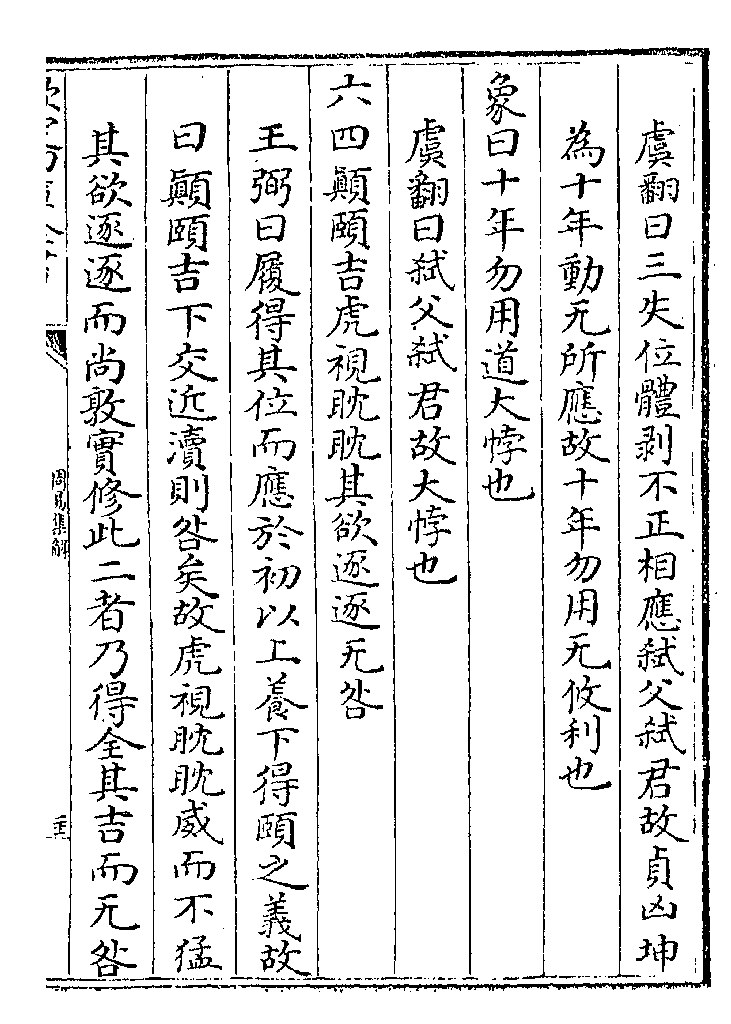 虞翻曰三失位體剥不正相應弑父弑君故貞凶坤
為十年動无所應故十年勿用无攸利也
象曰十年勿用道大悖也
虞翻曰弑父弑君故大悖也
六四顛頤吉虎視眈眈其欲逐逐无咎
王弼曰履得其位而應於初以上養下得頤之義故
曰顛頤吉下交近瀆則咎矣故虎視眈眈威而不猛
其欲逐逐而尚敦實修此二者乃得全其吉而无咎
周易集解